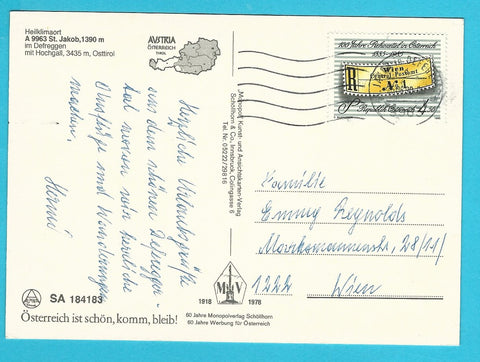 Heilklimaort
A 9963 St. Jakob, 1390 m
im Defreggen
mit Hochgall, 3435 m, Osttirol
AUSTRIA
ÖSTERREICH
TIROL
Herzliche Urlaubsgrüße
aus dem schönen Defreggen
Hat
Ausflüge und Wanderungen
machen.
SA 184183
Österreich ist schön, komm, bleib!
„Monopol“ Kunst- und Ansichtskarten-Verlag
Schöllhorn & Co., Innsbruck, Colingasse 6
Tel. Nr. 05222/29816
1918 MV 1978
60 Jahre Monopolverlag Schöllhorn
60 Jahre Werbung für Österreich
100 Jahre Rekozettel in Österreich
1885-1985
R
Wien
Central-Postamt
No 1
Republik Österreich
Familie
Emmy Reynolds
28/11
1222 Wien